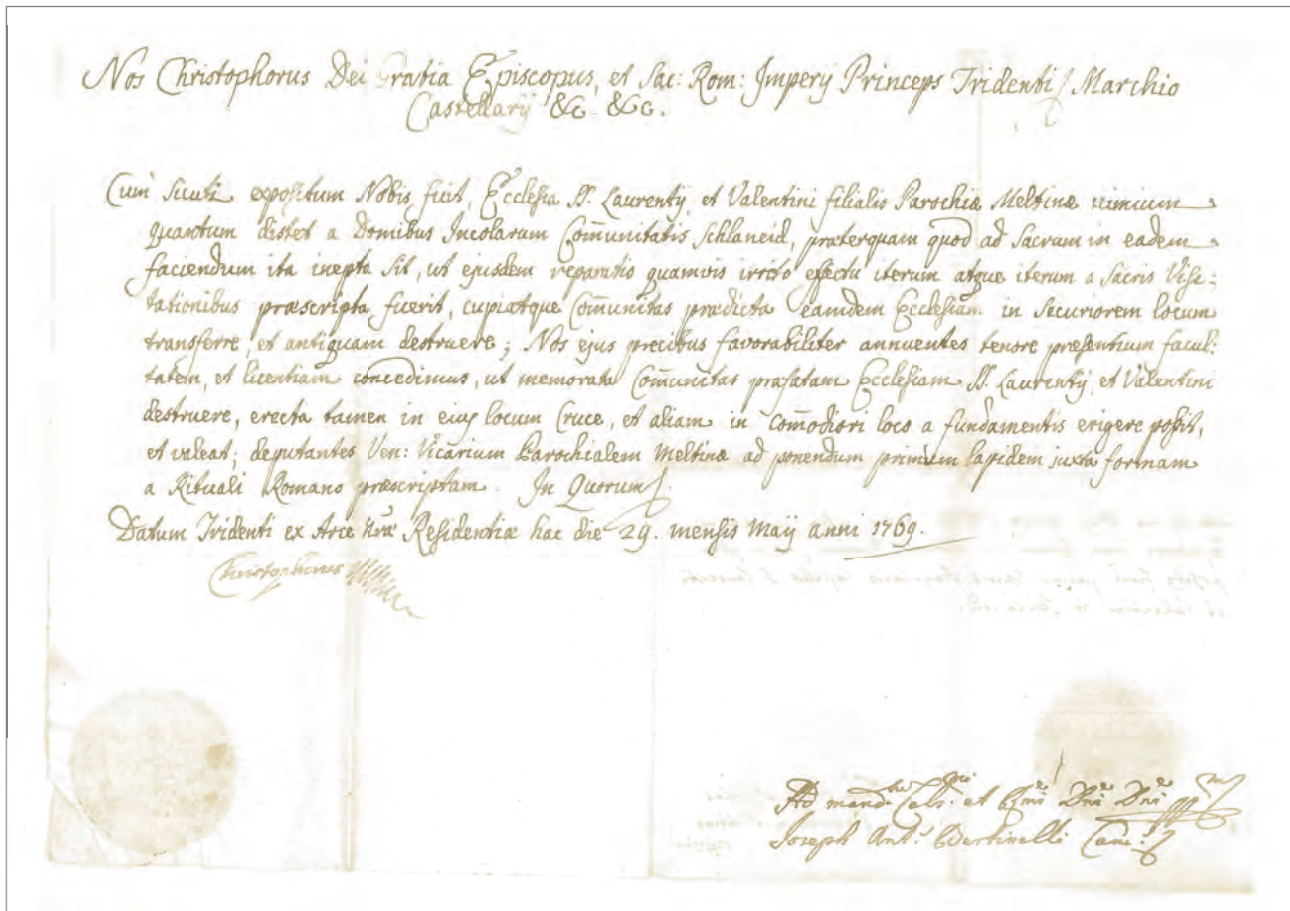 Nos Christophorus Dei Gratia Episcopus, et Sac: Rom: Imperÿ Princeps Tridenti, Marchio
Castellarÿ &c &c.
Cum sicuti expositum Nobis fuit, Ecclesia SS. Laurentÿ, et Valentini filialis Parochiæ Meltinæ nimium
quantum distet a Domibus Incolarum Com̃unitatis Schlaneid, præterquam quod ad Sacrum in eadem
faciendum ita inepta sit, ut ejusdem reparatio quamvis irrito effectu iterum atque iterum a Sacris Visi:
tationibus præscripta fuerit, cupiatque Com̃unitas prædicta eamdem Ecclesiam in securiorem locum
transferre, et antiquam destruere; Nos ejus precibus favorabiliter annuentes tenore præsentium facul:
tatem, et licentiam concedimus, ut memorata Com̃unitas præfatam Ecclesiam SS. Laurentÿ, et Valentini
destruere, erecta tamen in ejus locum Cruce, et aliam in com̃odiori loco a fundamentis erigere possit,
et valeat; deputantes Ven: Vicarium Parochialem Meltinæ ad ponendum primum lapidem juxta formam
a Rituali Romano præscriptam. In Quorum
Datum Tridenti ex Arce nr̃æ Residentiæ hac die 29. mensis Maÿ anni 1769.
Christophorus
Ad mand: Cels: et Dni Dni
Joseph Ant: Bertinelli Canc: